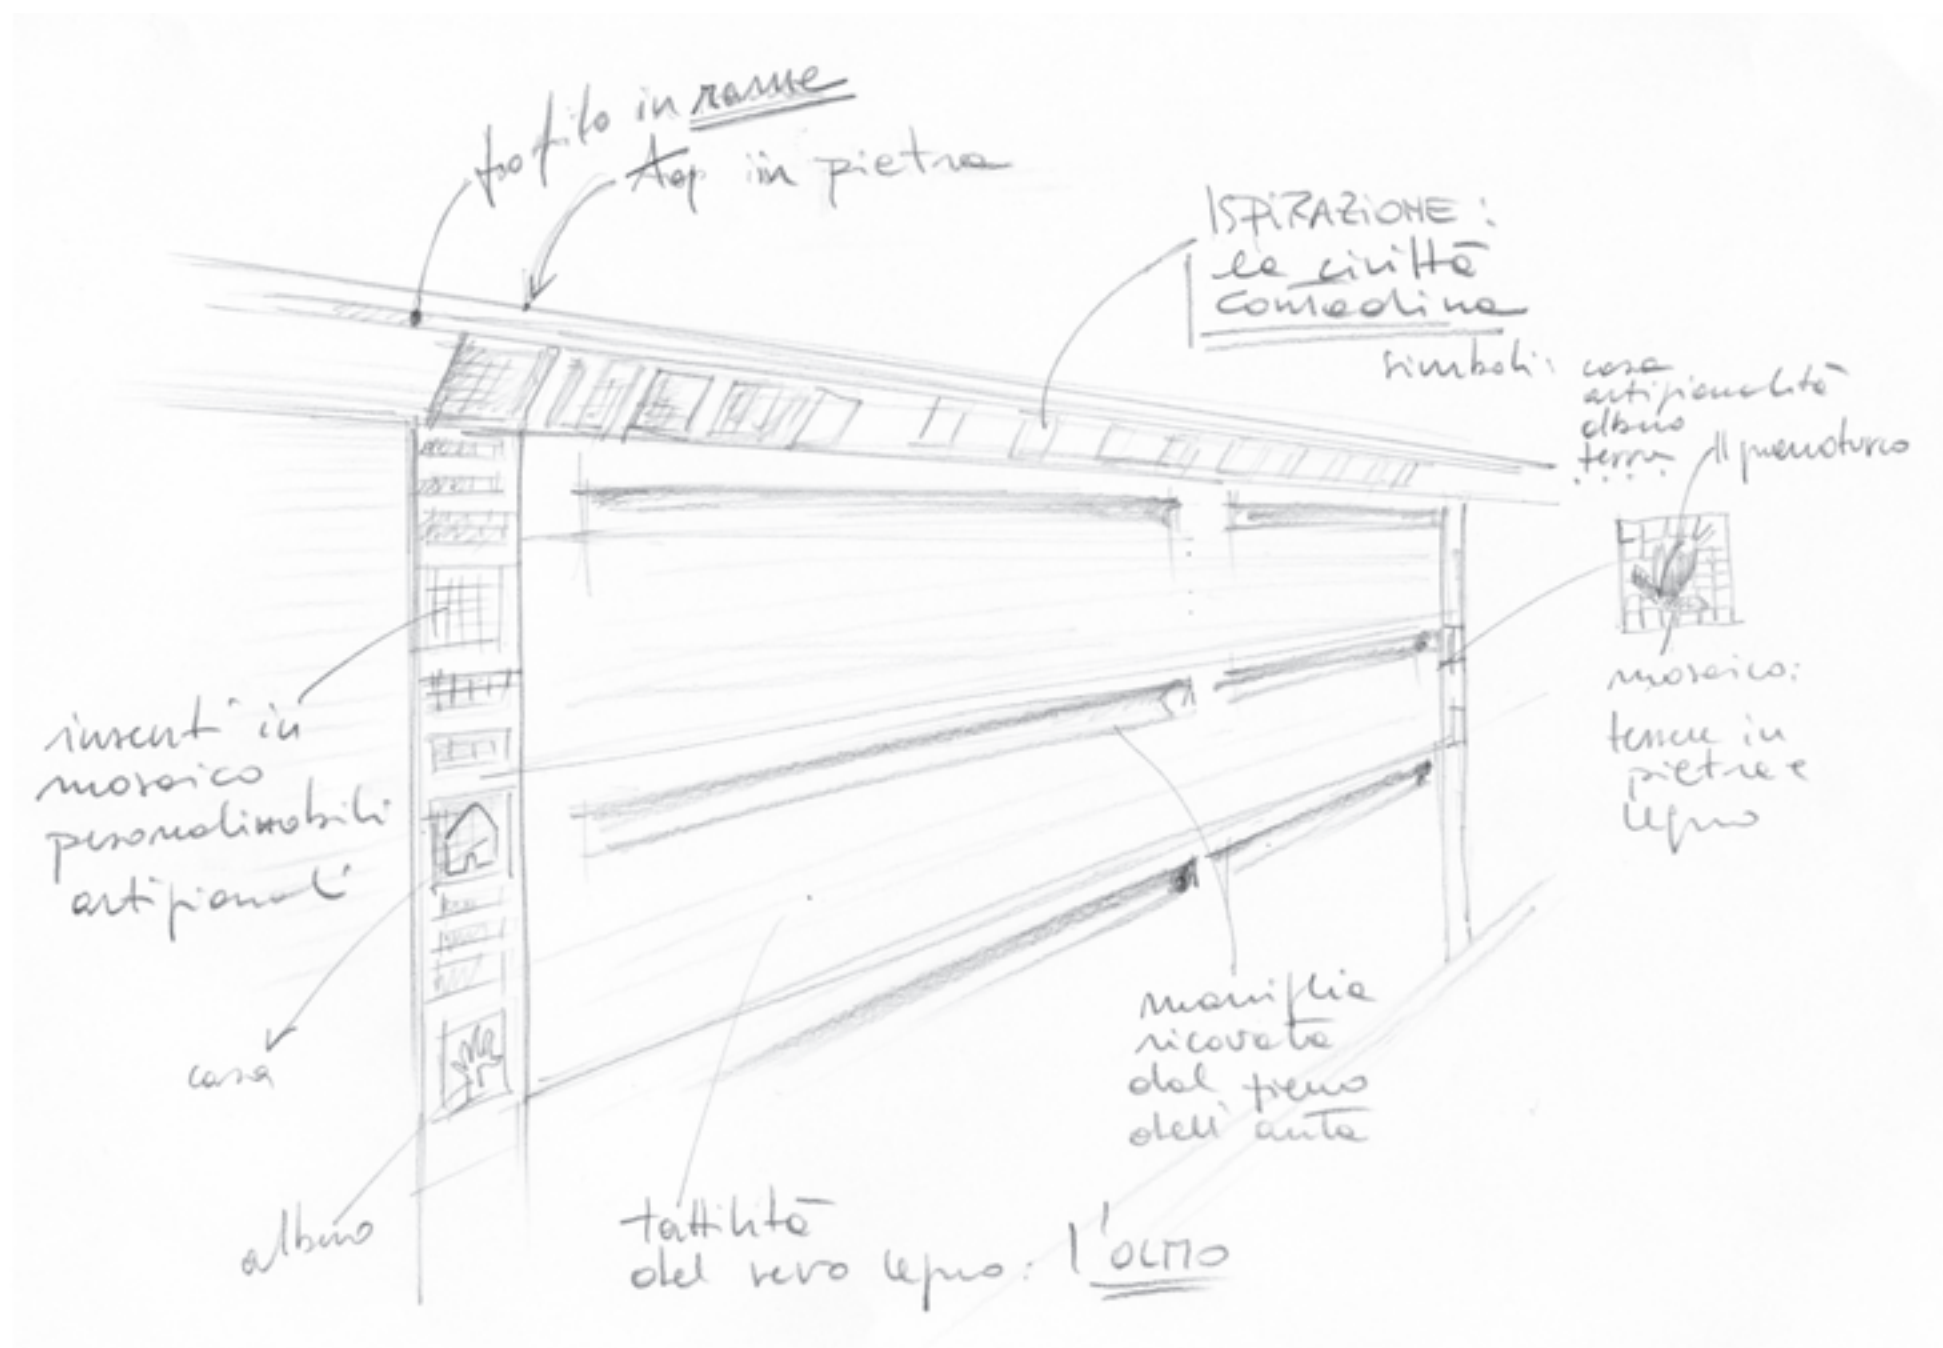 profilo in rame
top in pietra
ISPIRAZIONE:
la civiltà
contadina
simboli:
casa
artigianalità
albero
terra
....
Il granoturco
mosaico:
tessere in
pietra e
legno
inserti in
mosaico
personalizzabili
artigianali
casa
albero
maniglia
ricavata
dal pieno
dell'anta
tattilità
del vero legno: l'OLMO